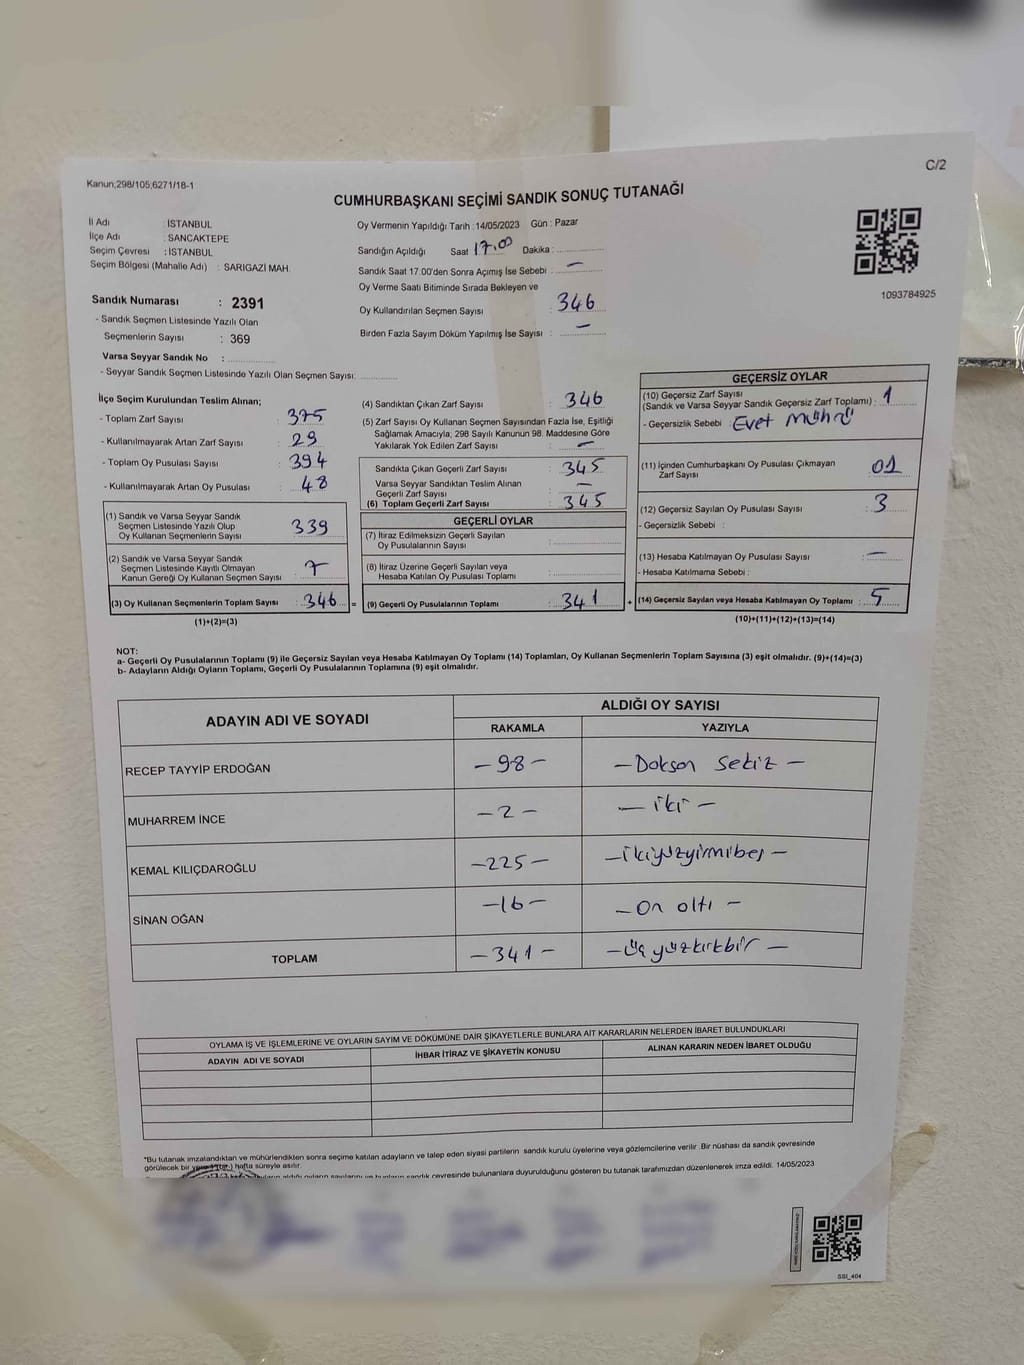 Kanun;298/105,6271/18-1
C/2
CUMHURBAŞKANI SEÇİMİ SANDIK SONUÇ TUTANAĞI
İl Adı : İSTANBUL
İlçe Adı : SANCAKTEPE
Seçim Çevresi : İSTANBUL
Seçim Bölgesi (Mahalle Adı) : SARIGAZİ MAH.
Oy Vermenin Yapıldığı Tarih :14/05/2023 Gün : Pazar
Sandığın Açıldığı Saat 17.00 Dakika :
Sandık Saat 17.00'den Sonra Açımış İse Sebebi : —
Oy Verme Saati Bitiminde Sırada Bekleyen ve
Oy Kullandırılan Seçmen Sayısı : 346
Birden Fazla Sayım Döküm Yapılmış İse Sayısı : —
1093784925
Sandık Numarası : 2391
- Sandık Seçmen Listesinde Yazılı Olan
Seçmenlerin Sayısı : 369
Varsa Seyyar Sandık No :
- Seyyar Sandık Seçmen Listesinde Yazılı Olan Seçmen Sayısı:
İlçe Seçim Kurulundan Teslim Alınan;
- Toplam Zarf Sayısı : 375
- Kullanılmayarak Artan Zarf Sayısı : 29
- Toplam Oy Pusulası Sayısı : 394
- Kullanılmayarak Artan Oy Pusulası : 48
(1) Sandık ve Varsa Seyyar Sandık
Seçmen Listesinde Yazılı Olup
Oy Kullanan Seçmenlerin Sayısı : 339
(2) Sandık ve Varsa Seyyar Sandık
Seçmen Listesinde Kayıtlı Olmayan
Kanun Gereği Oy Kullanan Seçmen Sayısı : 7
(3) Oy Kullanan Seçmenlerin Toplam Sayısı : 346 =
(1)+(2)=(3)
(4) Sandıktan Çıkan Zarf Sayısı : 346
(5) Zarf Sayısı Oy Kullanan Seçmen Sayısından Fazla İse, Eşitliği
Sağlamak Amacıyla, 298 Sayılı Kanunun 98. Maddesine Göre
Yakılarak Yok Edilen Zarf Sayısı : —
Sandıkta Çıkan Geçerli Zarf Sayısı : 345
Varsa Seyyar Sandıktan Teslim Alınan
Geçerli Zarf Sayısı : —
(6) Toplam Geçerli Zarf Sayısı : 345
GEÇERLİ OYLAR
(7) İtiraz Edilmeksizin Geçerli Sayılan
Oy Pusulalarının Sayısı :
(8) İtiraz Üzerine Geçerli Sayılan veya
Hesaba Katılan Oy Pusulası Toplamı :
(9) Geçerli Oy Pusulalarının Toplamı : 341 +
GEÇERSİZ OYLAR
(10) Geçersiz Zarf Sayısı
(Sandık ve Varsa Seyyar Sandık Geçersiz Zarf Toplamı) : 1
- Geçersizlik Sebebi : Evet Mührü
(11) İçinden Cumhurbaşkanı Oy Pusulası Çıkmayan
Zarf Sayısı : 01
(12) Geçersiz Sayılan Oy Pusulası Sayısı : 3
- Geçersizlik Sebebi :
(13) Hesaba Katılmayan Oy Pusulası Sayısı : —
- Hesaba Katılmama Sebebi :
(14) Geçersiz Sayılan veya Hesaba Katılmayan Oy Toplamı : 5
(10)+(11)+(12)+(13)=(14)
NOT:
a- Geçerli Oy Pusulalarının Toplamı (9) ile Geçersiz Sayılan veya Hesaba Katılmayan Oy Toplamı (14) Toplamları, Oy Kullanan Seçmenlerin Toplam Sayısına (3) eşit olmalıdır. (9)+(14)=(3)
b- Adayların Aldığı Oyların Toplamı, Geçerli Oy Pusulalarının Toplamına (9) eşit olmalıdır.
ADAYIN ADI VE SOYADI
ALDIĞI OY SAYISI
RAKAMLA YAZIYLA
RECEP TAYYİP ERDOĞAN —98— —Doksan Sekiz—
MUHARREM İNCE —2— —İki—
KEMAL KILIÇDAROĞLU —225— —İkiyüzyirmibeş—
SİNAN OĞAN —16— —On altı—
TOPLAM —341— —Üçyüzkırkbir—
OYLAMA İŞ VE İŞLEMLERİNE VE OYLARIN SAYIM VE DÖKÜMÜNE DAİR ŞİKAYETLERLE BUNLARA AİT KARARLARIN NELERDEN İBARET BULUNDUKLARI
ADAYIN ADI VE SOYADI İHBAR İTİRAZ VE ŞİKAYETİN KONUSU ALINAN KARARIN NEDEN İBARET OLDUĞU
*Bu tutanak imzalandıktan ve mühürlendikten sonra seçime katılan adayların ve talep eden siyasi partilerin sandık kurulu üyelerine veya gözlemcilerine verilir. Bir nüshası da sandık çevresinde
görülecek bir yere 1 (bir) hafta süreyle asılır.
aldığı oyların sayılarını ve bunların sandık çevresinde bulunanlara duyurulduğunu gösteren bu tutanak tarafımızdan düzenlenerek imza edildi. 14/05/2023
SSI_404